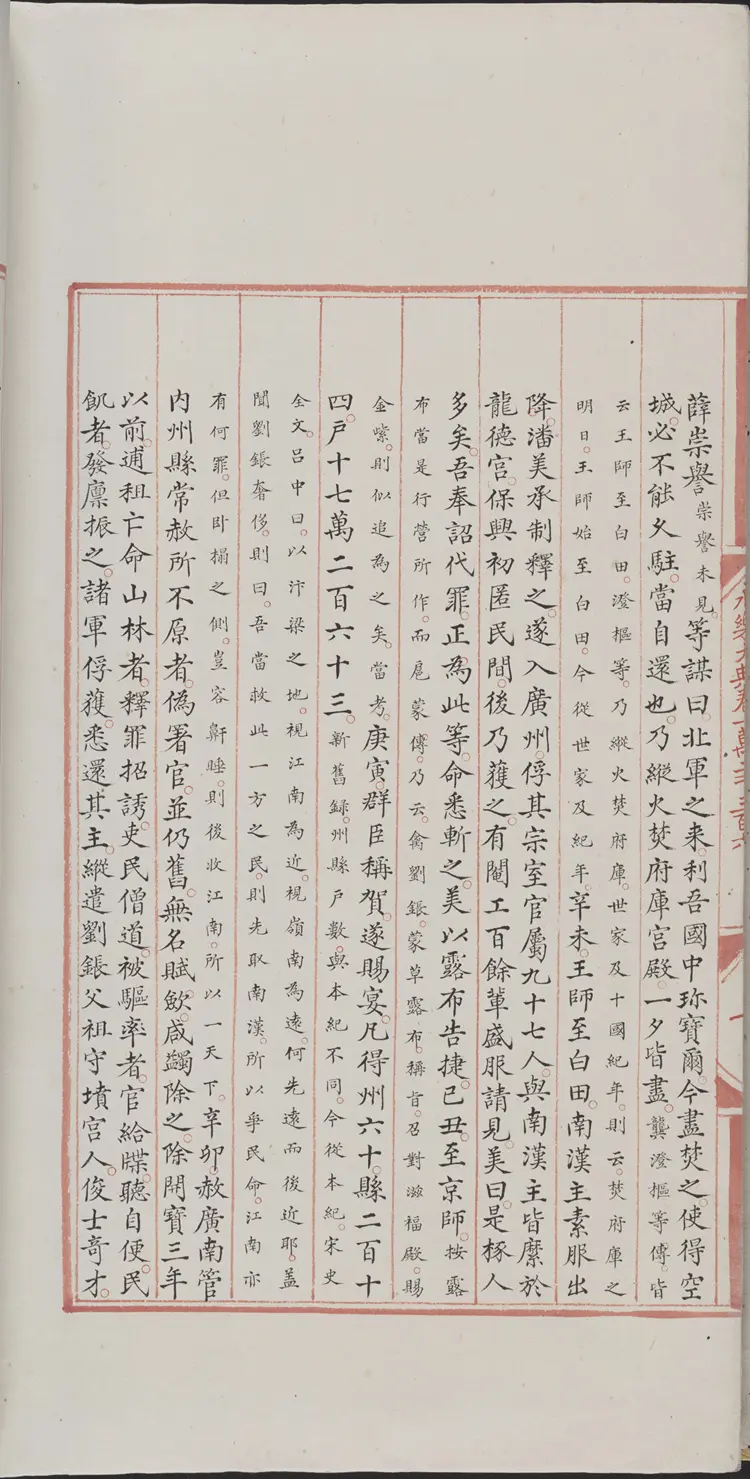 永樂大典卷一萬二千三百六
薛崇譽崇譽未見。等謀曰。北軍之来。利吾國中珎寶爾。今盡焚之。使得空
城。必不能久駐。當自還也。乃縱火焚府庫宫殿。一夕皆盡。龔澄樞等傳。皆
云王師至白田。澄樞等。乃縱火焚府庫。世家及十國紀年。則云。焚府庫之
明日。王師始至白田。今從世家及紀年。辛未。王師至白田。南漢主素服出
降。潘美承制釋之。遂入廣州。俘其宗室官屬九十七人。與南漢主皆縻於
龍德宫。保興初匿民間。後乃獲之。有閹工百餘輩盛服請見。美曰。是椓人
多矣。吾奉詔伐罪。正為此等。命悉斬之。美以露布告捷。己丑。至京師。按露
布當是行營所作。而扈蒙傳。乃云。禽劉鋹。蒙草露布。稱旨。召對滋福殿。賜
金紫。則似追為之矣。當考。庚寅。群臣稱賀。遂賜宴。凡得州六十。縣二百十
四。户十七萬二百六十三。新舊録。州縣户數。與本紀不同。今從本紀。宋史
全文。吕中曰。以汴梁之地。視江南為近。視嶺南為遠。何先遠而後近耶。盖
聞劉鋹奢侈。則曰。吾當救此一方之民。則先取南漢。所以爭民命。江南亦
有何罪。但卧榻之側。豈容鼾睡。則後收江南。所以一天下。辛卯。赦廣南管
内州縣常赦所不原者。偽署官。並仍舊。無名賦歛。咸蠲除之。除開寶三年
以前。逋租亡命山林者。釋罪招誘。吏民僧道。被驅率者。官給牒。聽自便。民
飢者。發廪振之。諸軍俘獲。悉還其主。縱遣劉鋹父祖守墳宫人。俊士奇才。